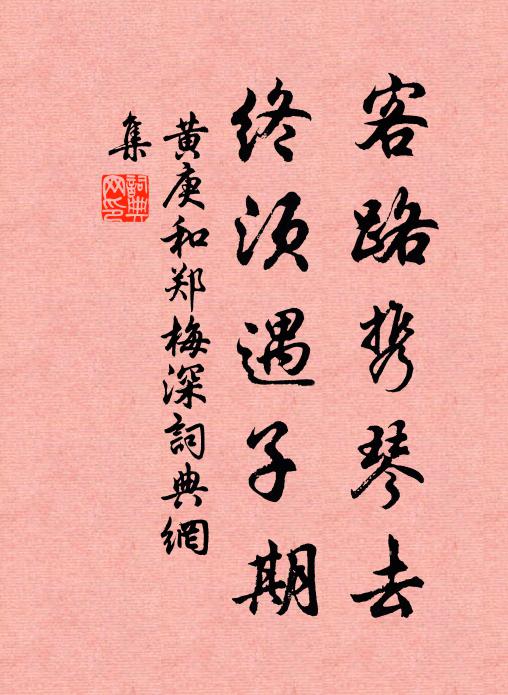 客路携琴去
终须遇子期
黄庚和郑梅深詞典網
集
詞典
网印